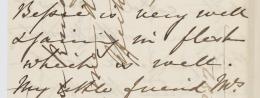 Bessie is very well
& gaining in flesh
which is well.
My little friend Mrs